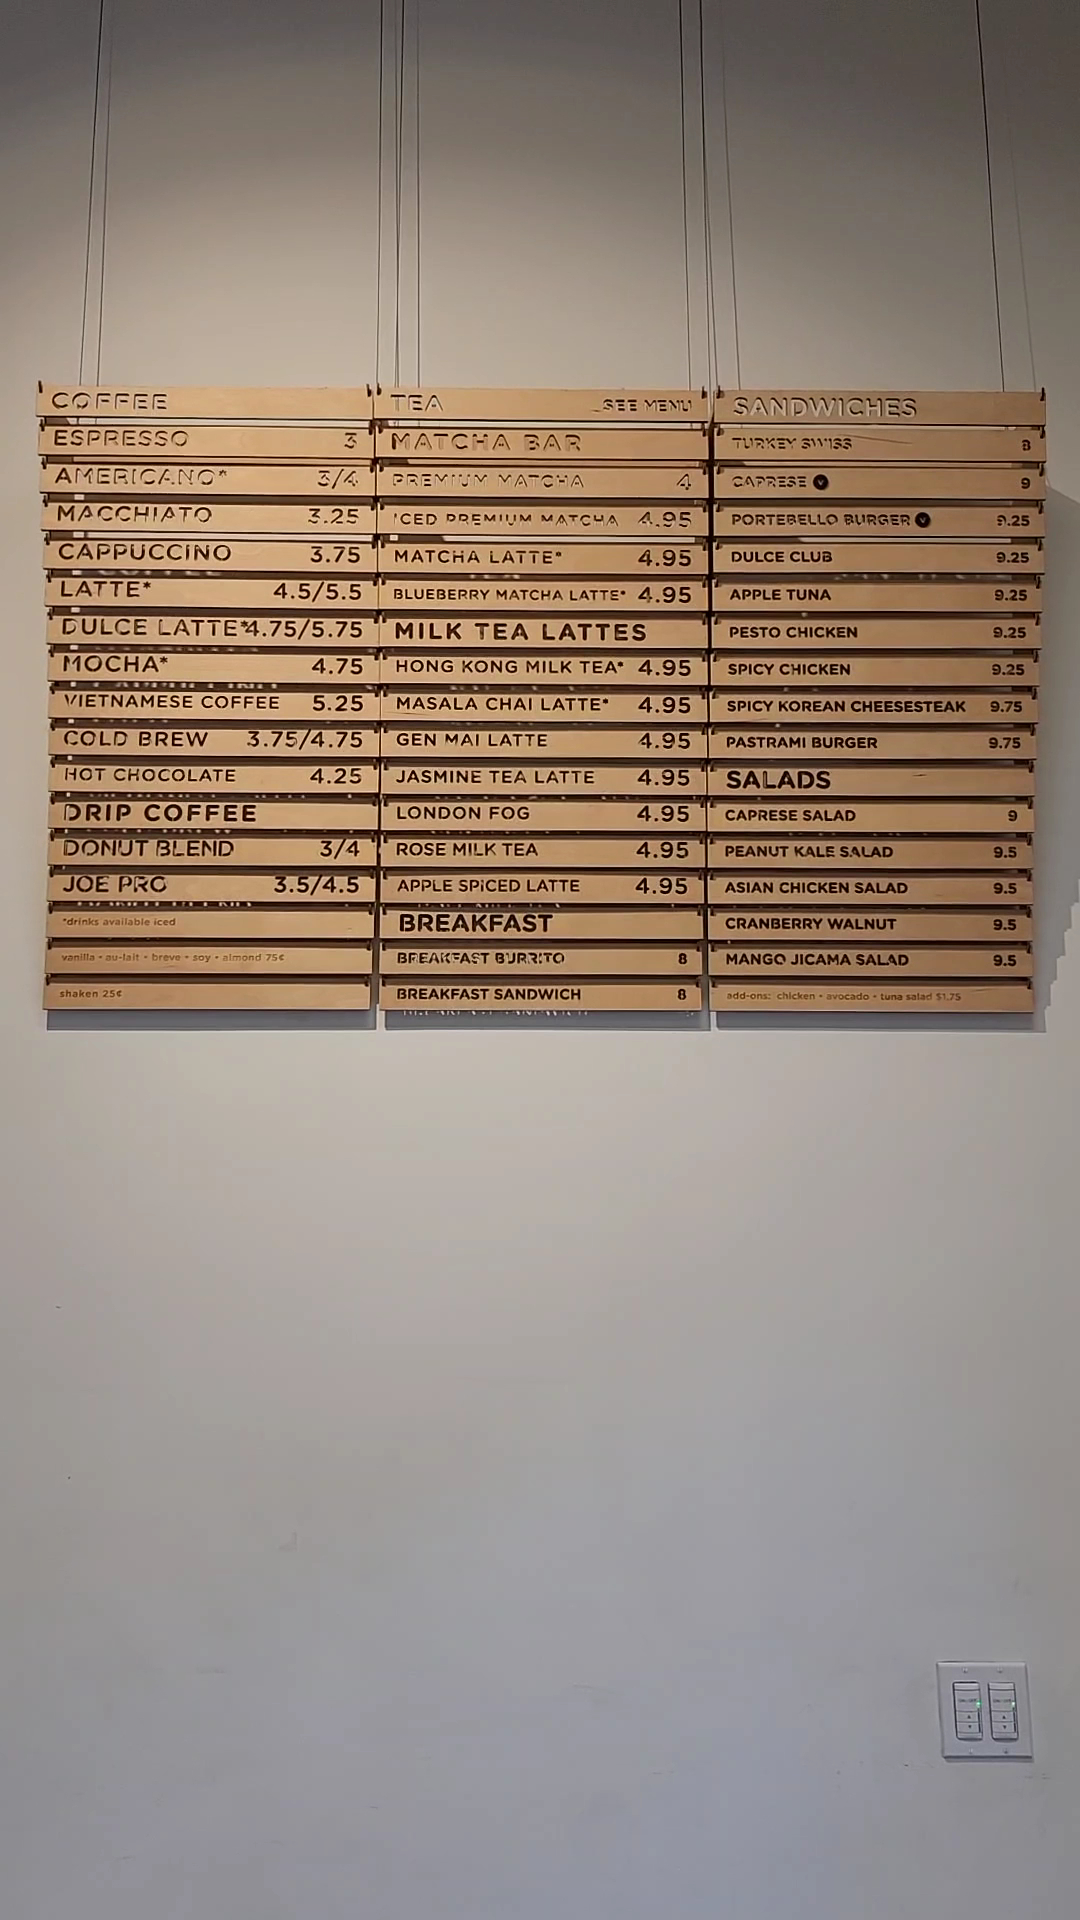 COFFEE
ESPRESSO 3
AMERICANO* 3/4
MACCHIATO 3.25
CAPPUCCINO 3.75
LATTE* 4.5/5.5
DULCE LATTE* 4.75/5.75
MOCHA* 4.75
VIETNAMESE COFFEE 5.25
COLD BREW 3.75/4.75
HOT CHOCOLATE 4.25
DRIP COFFEE
DONUT BLEND 3/4
JOE PRO 3.5/4.5
*drinks available iced
vanilla • au-lait • breve • soy • almond 75¢
shaken 25¢
TEA SEE MENU
MATCHA BAR
PREMIUM MATCHA 4
ICED PREMIUM MATCHA 4.95
MATCHA LATTE* 4.95
BLUEBERRY MATCHA LATTE* 4.95
MILK TEA LATTES
HONG KONG MILK TEA* 4.95
MASALA CHAI LATTE* 4.95
GEN MAI LATTE 4.95
JASMINE TEA LATTE 4.95
LONDON FOG 4.95
ROSE MILK TEA 4.95
APPLE SPICED LATTE 4.95
BREAKFAST
BREAKFAST BURRITO 8
BREAKFAST SANDWICH 8
SANDWICHES
TURKEY SWISS 8
CAPRESE V 9
PORTEBELLO BURGER V 9.25
DULCE CLUB 9.25
APPLE TUNA 9.25
PESTO CHICKEN 9.25
SPICY CHICKEN 9.25
SPICY KOREAN CHEESESTEAK 9.75
PASTRAMI BURGER 9.75
SALADS
CAPRESE SALAD 9
PEANUT KALE SALAD 9.5
ASIAN CHICKEN SALAD 9.5
CRANBERRY WALNUT 9.5
MANGO JICAMA SALAD 9.5
add-ons: chicken • avocado • tuna salad $1.75